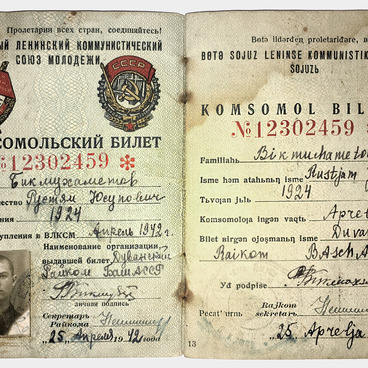 Пролетарии всех стран, соединяйтесь!
ЫЙ ЛЕНИНСКИЙ КОММУНИСТИЧЕСКИЙ
СОЮЗ МОЛОДЕЖИ
СССР
ОМОЛЬСКИЙ БИЛЕТ
№12302459 *
Бикмухаметов
чество Рустям Юсупович
ения 1924
тупления в ВЛКСМ Апрель 1942 г.
Наименование организации,
выдавшей билет Дуванский
Райком БашАССР
личная подпись
Секретарь
Райкома
"25" Апреля 1942 года
Bɵtɵ ildərdeŋ proletariəƶe, в
BƏTƏ SOJUZ LENINSE KOMMUNISTIK
SOJUZЬ
KOMSOMOL BIL
№12302459
Familiahь Bikmuchametov
Isme həm atahьnьŋ isme Rustjam
Tьvƣan jьlь 1924
Komsomolƣa ingən vaqtь Aprel
Bilet nirgən ojoşmanьŋ isme Duvan
Raikom BASchA
Yƌ podpise
Pecat' urnь Rajkom
sekretarь
"25" Aprelja
13